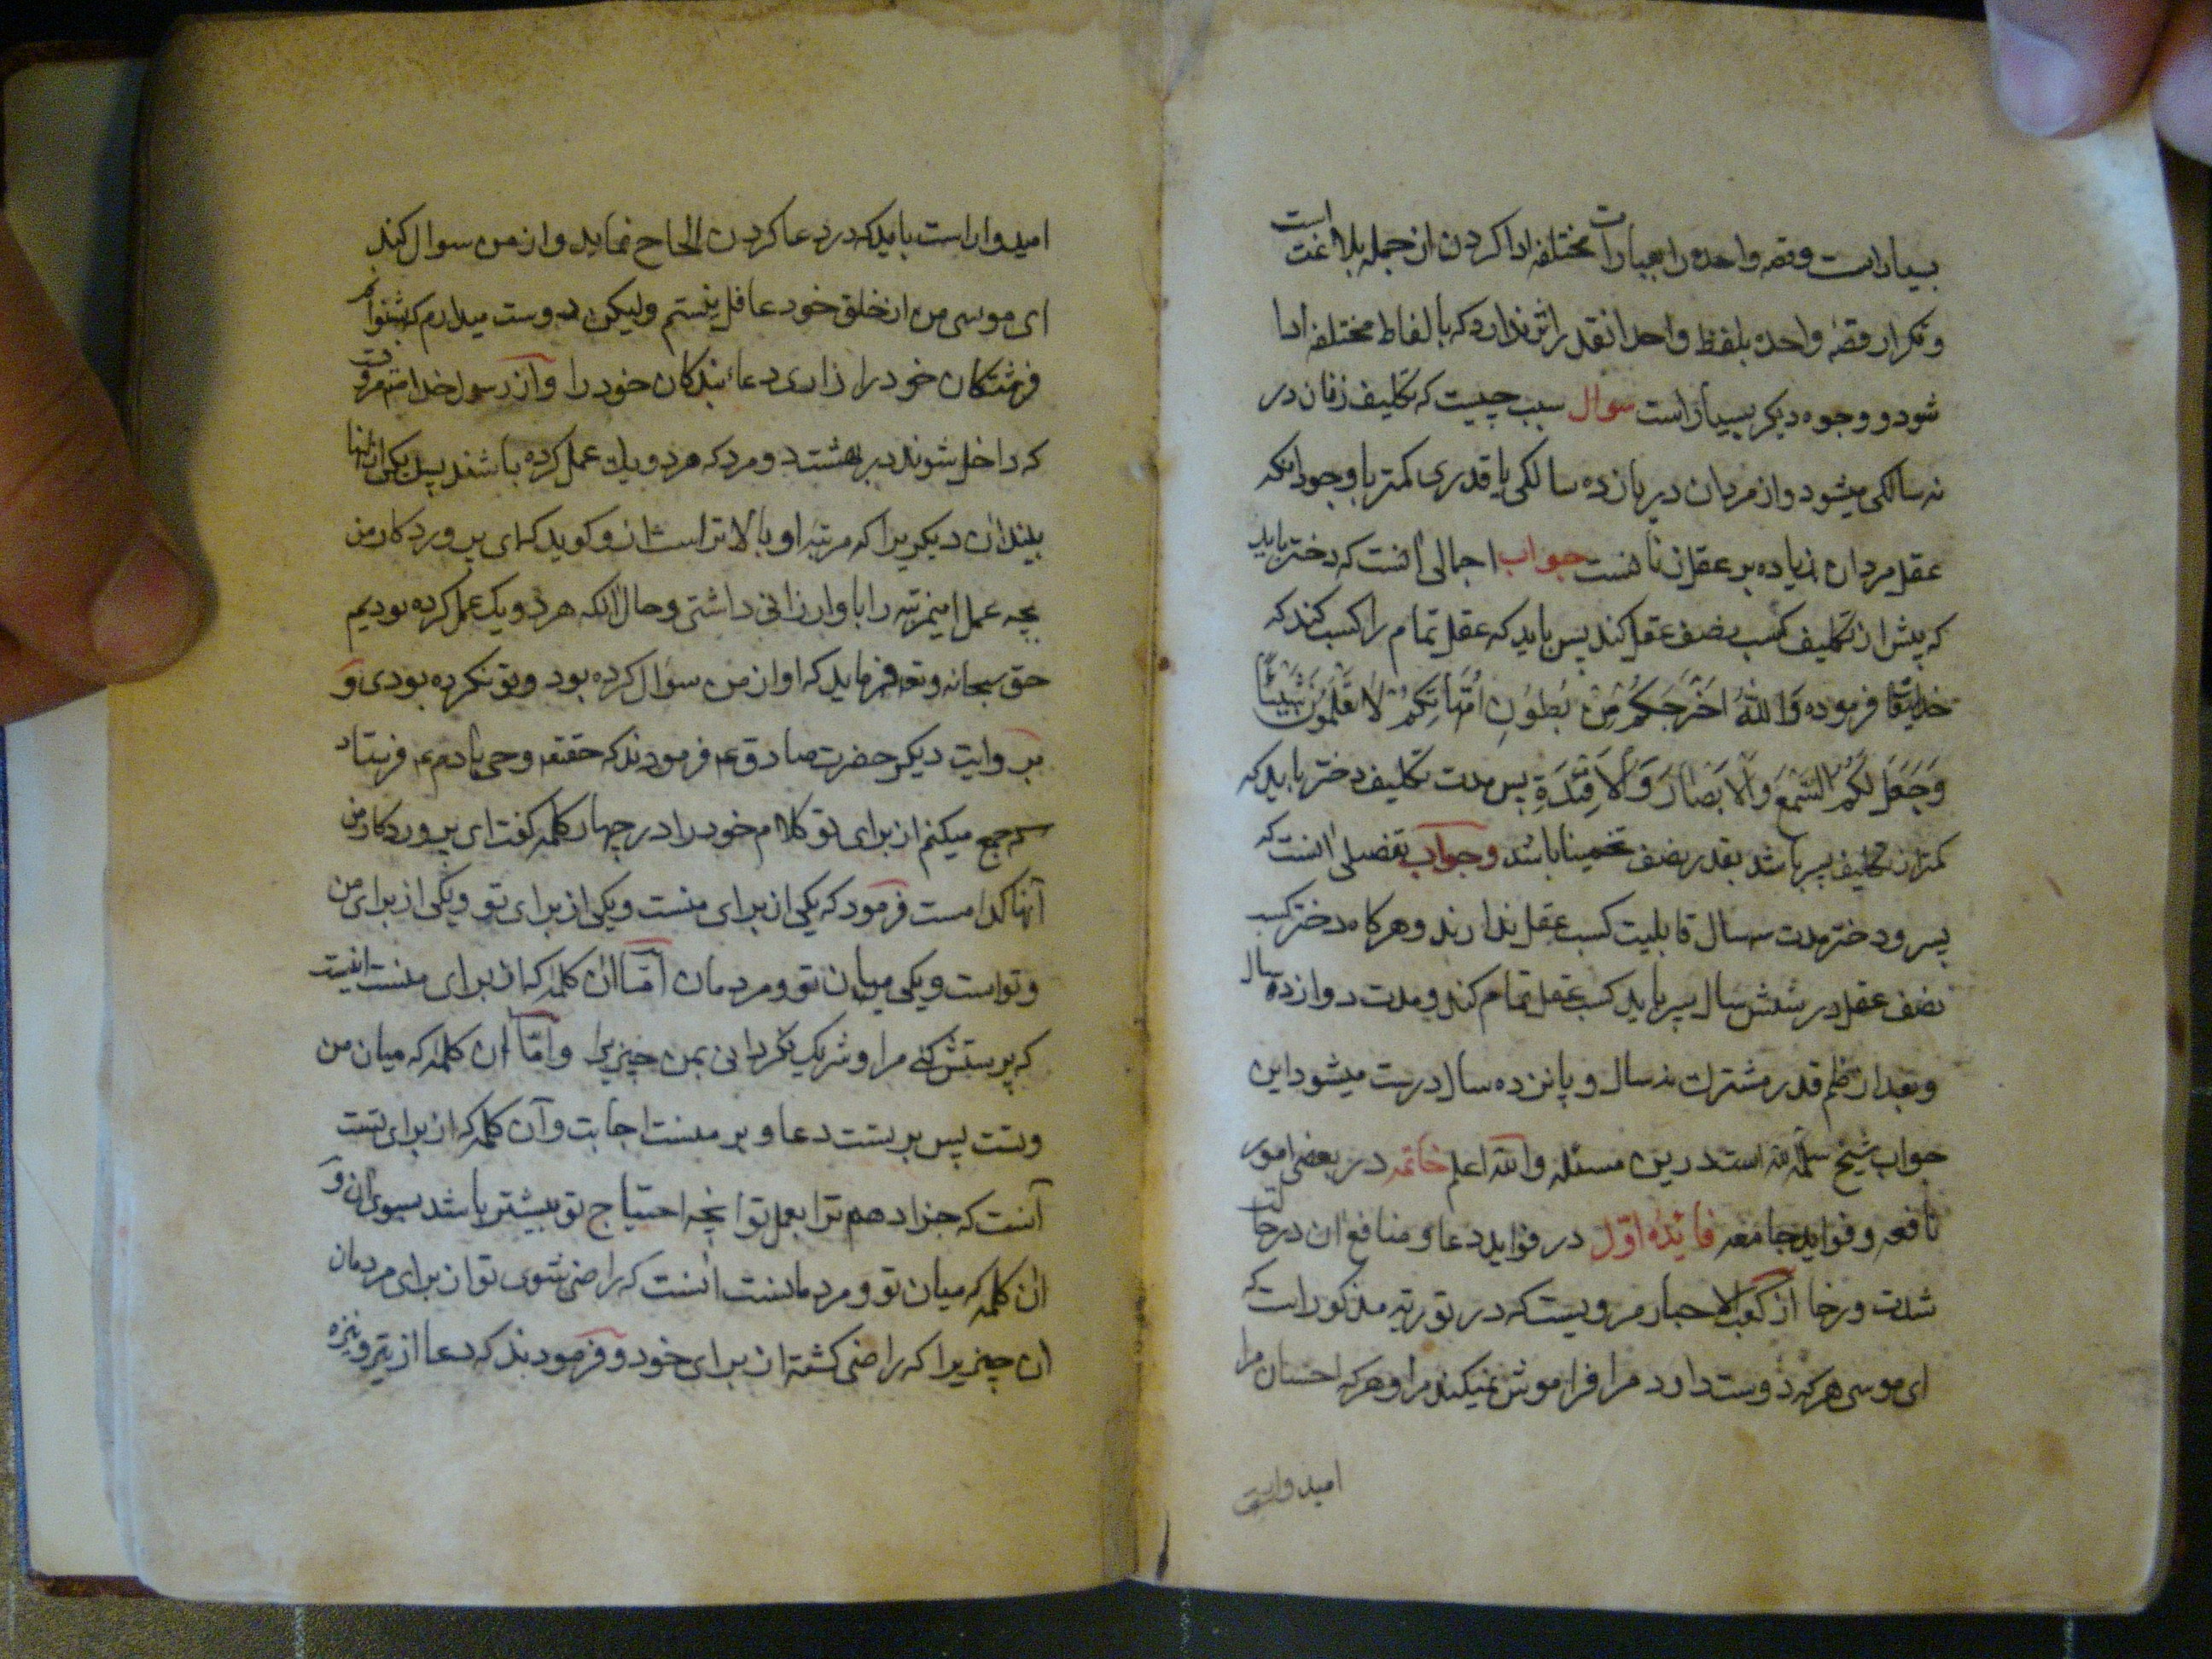 بسیار است وقصه واحده را بعبارات مختلفه ادا کردن از جمله بلاغت است
وتکرار قصهٔ واحده بلفظ واحد انقدر اثر ندارد که بالفاظ مختلفه ادا
شود ووجوه دیکر بسیار است سوال سبب چیست که تکلیف زنان در
نه سالکی میشود واز مردان در پانزده سالکی یا قدری کمتر با وجود انکه
عقل مردان زیاده بر عقل زنانست جواب اجمالی انست که دختر باید
که پیش از تکلیف کسب نصف عقل کند پس باید که عقل تمام را کسب کند که
خدایتعا فرموده وَاللّٰهُ اَخْرَجَكُمْ مِنْ بُطُونِ اُمَّهٰاتِكُمْ لٰا تَعْلَمُونَ شَيْئًا
وَجَعَلَ لَكُمُ السَّمْعَ وَالْاَبْصٰارَ وَالْاَفْئِدَةِ پس مدت تکلیف دختر باید که
کمتر از تکلیف پسر باشد بقدر نصف تخمینا باشد وجواب تفصیلی انست که
پسر ودختر مدت سه سال قابلیت کسب عقل ندارند وهرکاه دختر کسب
نصف عقل در شش سال پسر باید کسب عقل تمام کند ومدت دوازده سال
وبعد از ضم قدر مشترك نه سال و پانزده سال درست میشود این
جواب شیخ سلمه الله است درین مسئله والله اعلم خاتمه در بعضی امور
نافعه وفواید جامعه فائده اوّل در فواید دعا ومنافع ان در حالت
شدت ورخا از کعب الاحبار مرویست که در توریه مذکور است که
ای موسی هرکه دوست دارد مرا فراموش نمیکند مرا وهرکه احسان مرا
امیدوار است
امیدوار است باید که در دعا کردن الحاح نماید واز من سوال کند
ای موسی من از خلق خود غافل نیستم ولیکن دوست میدارم که بشنوانم
فرشتکان خود را زاری دعاء بندکان خود را واز رسول خدا ص مرویست
که داخل شوند در بهشت دو مرد که هر دو یك عمل کرده باشند پس یکی از انها
بیند ان دیکریرا که مرتبه او بالاتر است از و کوید که ای پروردکار من
بچه عمل اینمرتبه را باو ارزانی داشتی وحال انکه هر دو یک عمل کرده بودیم
حق سبحانه وتعه فرماید که او از من سؤال کرده بود وتو نکرده بودی وَ
بروایت دیکر حضرت صادق ع فرمودند که حقتعه وحی بادم ع فرستاد
که جمع میکنم از برای تو کلام خود را در چهار کلمه کفت ای پروردکار من
آنها کدامست فرمود که یکی از برای منست ویکی از برای تو ویکی از برای من
وتواست ویکی میان تو ومردمان اَمّا ان کلمه که از برای منست اینست
که پرستش کنی مرا وشریک نکردانی بمن چیزیرا واَمّا ان کلمه که میان من
وتست پس بر تست دعا وبر منست اجابت وآن کلمه که از برای تست
آنست که جزا دهم ترا بعمل تو انچه احتیاج تو بیشتر باشد بسوی ان وَ
ان کلمه که میان تو ومردمانست انست که راضی شوی تو از برای مردمان
ان چیزیرا که راضی کشتهٔ از برای خود وفرمودند که دعا از تیر ونیزه